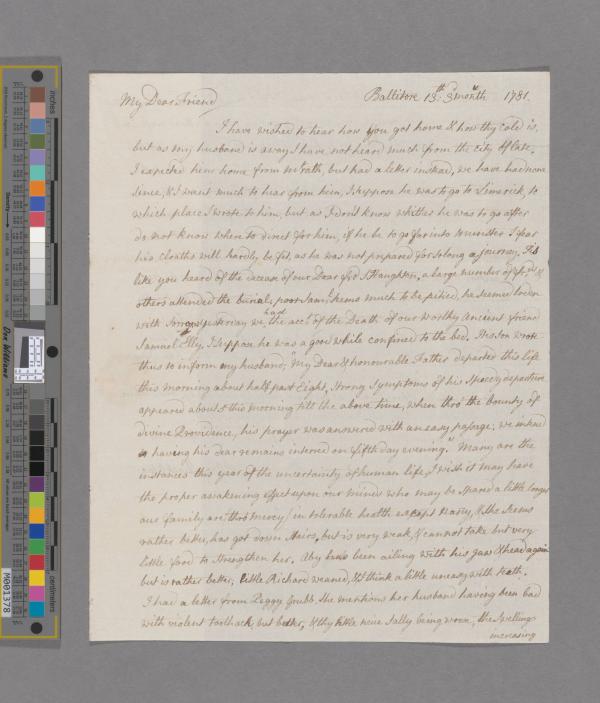 My Dear Friend
Ballitore 13th 3d month 1781.
I have wished to hear how you got home & how thy cold is,
but as my husband is away I have not heard much from the city of late.
I expected him home from, but had a letter instead, we have had none
since, & I want much to hear from him, I suppose he was to go to Limerick, to
which place I wrote to him, but as I don't know whither he was to go after
do not know where to direct for him, if he be to go far into Munster I fear
his cloaths will hardly be fit, as he was not prepared for so long a journey. Tis
like you heard of the decease of our Dear frd S: Haughton, a large number of frds &
others attended the burial, poor Sam: seems much to be pitied, he seemed broken
with Sorrow, yesterday we had the acct. of the Death of our worthy ancient friend
Samuel Elly, I suppose he was a good while confined to the bed. His son wrote
thus to inform my husband; "My Dear & honourable Father departed this life
this morning about half past Eight, strong Symptoms of his speedy departure
appeared about this morning till the above time, when thro' the bounty of
divine Providence, his prayer was answered with an easy passage; we intend
having his dear remains interred on fifth day evening." Many are the
instances this year of the uncertainty of human life, I wish it may have
the proper awakening effect upon our minds who may be spared a little longer
our family are (thro' mercy) in tolerable health except Nanny, & she seems
rather better, has got down stairs, but is very weak, & cannot take but very
little food to strengthen her. Aby has been ailing with his jaw & head again
but is rather better, little Richard weaned, & I think a little uneasy with teeth.
I had a letter from Peggy Grubb, she mentions her husband having been bad
with violent toothach, but better, & thy little niece Sally being worse, the swellings
increasing
inches
centimeters
Don Williams
M001378